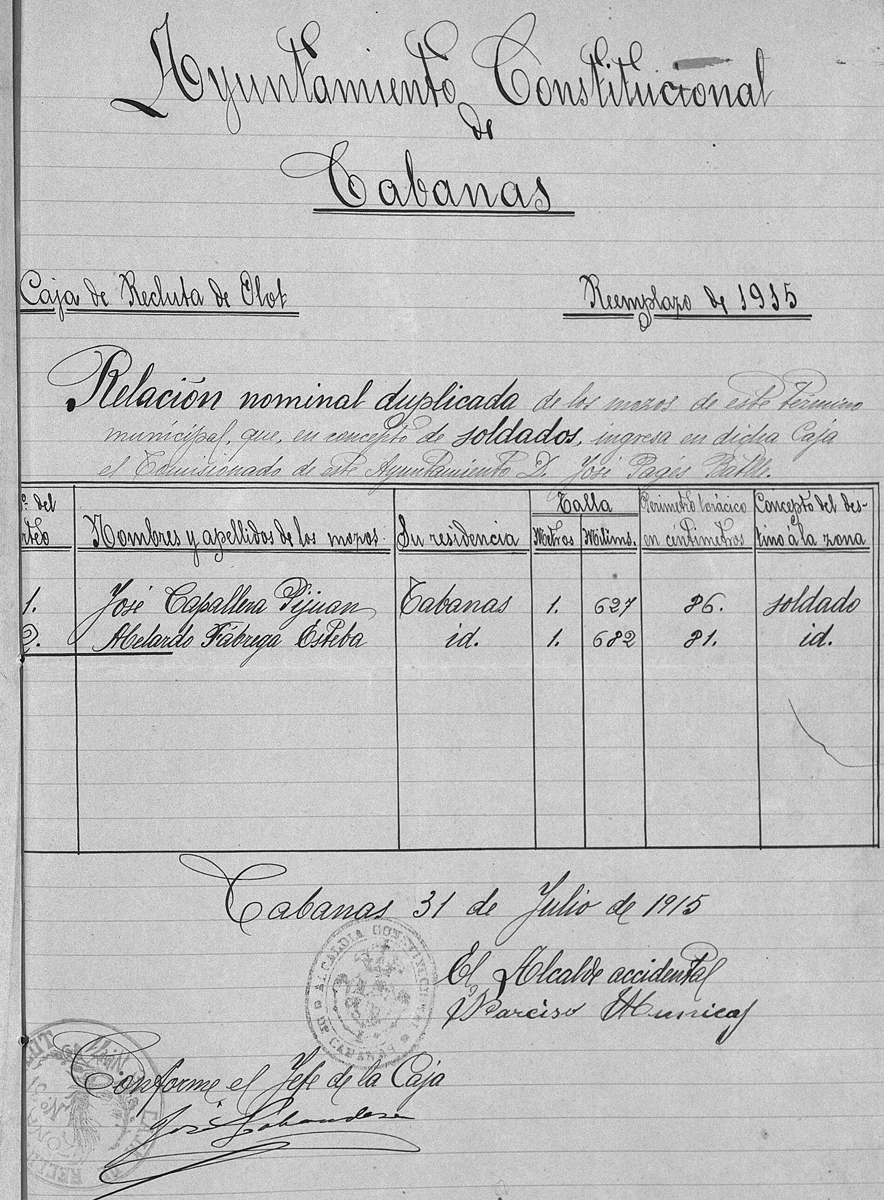 Ayuntamiento Constitucional
de
Cabanas
Caja de Recluta de Olot
Reemplazo de 1915
Relación nominal duplicada de los mozos de este término
municipal, que, en concepto de soldados, ingresa en dicha Caja
el Comisionado de este Ayuntamiento D. José Pagés Batlle.
Nombres y apellidos de los mozos
Su residencia
Talla
Metros Milims.
Perimetro torácico
en centimetros
Concepto del des-
tino á la zona
1. José Capallera Pijuan Cabanas 1. 627 86. soldado
2. Abelardo Fábrega Esteba id. 1. 682 81. id.
Cabanas 31 de Julio de 1915
El Alcalde accidental
Narciso
ALCALDIA CONSTITUCIONAL
DE CABANAS
Conforme el Jefe de la Caja
José
CAJA